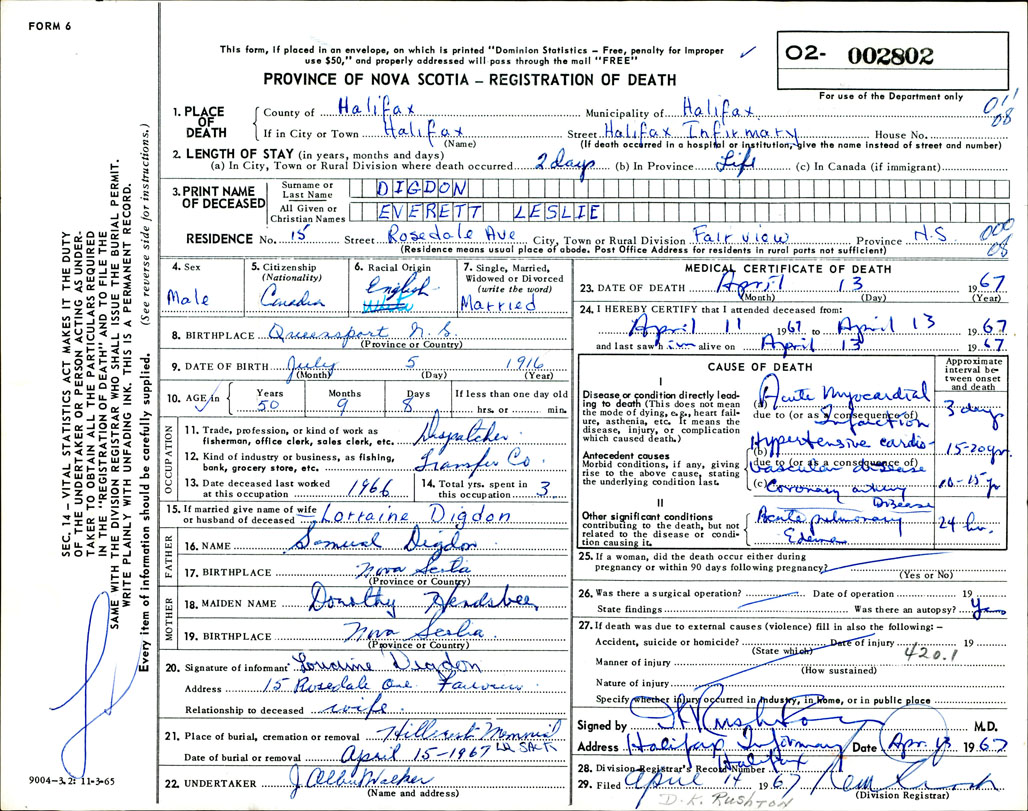 FORM 6
This form, if placed in an envelope, on which is printed "Dominion Statistics – Free, penalty for improper
use $50," and properly addressed will pass through the mail "FREE"
O2- 002802
For use of the Department only
PROVINCE OF NOVA SCOTIA – REGISTRATION OF DEATH
011
08
1. PLACE OF DEATH
County of Halifax Municipality of Halifax
If in City or Town Halifax Street Halifax Infirmary House No.
(Name) (If death occurred in a hospital or institution, give the name instead of street and number)
2. LENGTH OF STAY (in years, months and days)
(a) In City, Town or Rural Division where death occurred 2 days (b) In Province Life (c) In Canada (if immigrant)
3. PRINT NAME OF DECEASED
Surname or Last Name DIGDON
All Given or Christian Names EVERETT LESLIE
RESIDENCE No. 15 Street Rosedale Ave City, Town or Rural Division Fairview Province N.S.
(Residence means usual place of abode. Post Office Address for residents in rural parts not sufficient)
000
08
4. Sex Male
5. Citizenship (Nationality) Canadian
6. Racial Origin English
7. Single, Married, Widowed or Divorced (write the word) Married
8. BIRTHPLACE Queensport N.S.
(Province or Country)
9. DATE OF BIRTH July 5 1916
(Month) (Day) (Year)
10. AGE in Years 50 Months 9 Days 8 If less than one day old hrs. or min.
OCCUPATION
11. Trade, profession, or kind of work as fisherman, office clerk, sales clerk, etc. Dispatcher
12. Kind of industry or business, as fishing, bank, grocery store, etc. Transfer Co.
13. Date deceased last worked at this occupation 1966
14. Total yrs. spent in this occupation 3
15. If married give name of wife or husband of deceased Lorraine Digdon
FATHER
16. NAME Samual Digdon
17. BIRTHPLACE Nova Scotia
(Province or Country)
MOTHER
18. MAIDEN NAME Dorothy Hendsbee
19. BIRTHPLACE Nova Scotia
(Province or Country)
20. Signature of informant Lorraine Digdon
Address 15 Rosedale Ave Fairview
Relationship to deceased wife
21. Place of burial, cremation or removal Hillcrest Memorial
Date of burial or removal April 15-1967
22. UNDERTAKER J. Albt Walker
(Name and address)
MEDICAL CERTIFICATE OF DEATH
23. DATE OF DEATH April 13 1967
(Month) (Day) (Year)
24. I HEREBY CERTIFY that I attended deceased from:
April 11 1967 to April 13 1967
and last saw him alive on April 13 1967
CAUSE OF DEATH
Approximate interval between onset and death
I
Disease or condition directly leading to death (This does not mean the mode of dying, e.g., heart failure, asthenia, etc. It means the disease, injury, or complication which caused death.)
(a) Acute Myocardial Infarction 3 days
due to (or as a consequence of)
Antecedent causes
Morbid conditions, if any, giving rise to the above cause, stating the underlying condition last.
(b) Hypertensive cardio-vascular disease 15-20 yr.
due to (or as a consequence of)
(c) Coronary artery Disease 10-15 yr
II
Other significant conditions contributing to the death, but not related to the disease or condition causing it.
Acute pulmonary Edema 24 hr.
25. If a woman, did the death occur either during pregnancy or within 90 days following pregnancy?
(Yes or No)
26. Was there a surgical operation? Date of operation 19
State findings Was there an autopsy? Yes
27. If death was due to external causes (violence) fill in also the following:–
Accident, suicide or homicide? Date of injury 19
(State which)
420.1
Manner of injury
(How sustained)
Nature of injury
Specify whether injury occurred in industry, in home, or in public place
Signed by D K Rushton M.D.
Address Halifax Infirmary Halifax Date Apr. 13 1967
28. Division Registrar's Record Number
29. Filed April 14 1967
(Division Registrar)
D.K. RUSHTON
SEC. 14 – VITAL STATISTICS ACT MAKES IT THE DUTY
OF THE UNDERTAKER OR PERSON ACTING AS UNDER-
TAKER TO OBTAIN ALL THE PARTICULARS REQUIRED
IN THE "REGISTRATION OF DEATH" AND TO FILE THE
SAME WITH THE DIVISION REGISTRAR WHO SHALL ISSUE THE BURIAL PERMIT.
WRITE PLAINLY WITH UNFADING INK. THIS IS A PERMANENT RECORD.
Every item of information should be carefully supplied. (See reverse side for instructions.)
9004-3.2: 11-3-65